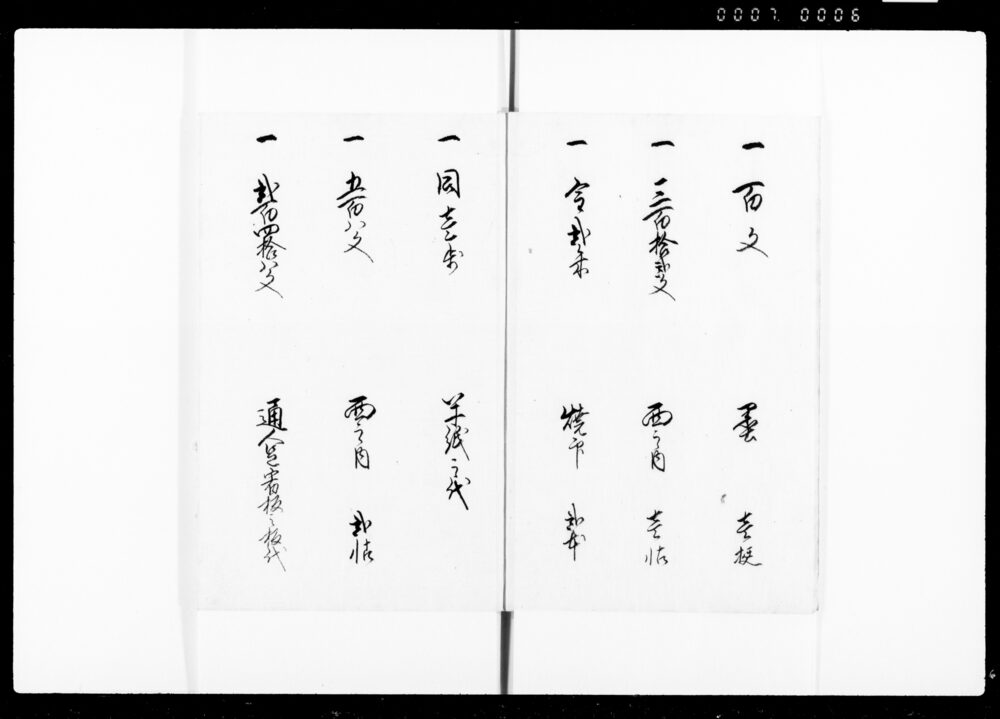 0007 0006
一 百文 墨 壱挺
一 三百拾弐文 西之内 壱帖
一 金弐朱 焼印 弐本
一 同壱歩 半紙之代
一 五百八文 西之内 弐帖
一 弐百四拾八文 通会所看板之板代